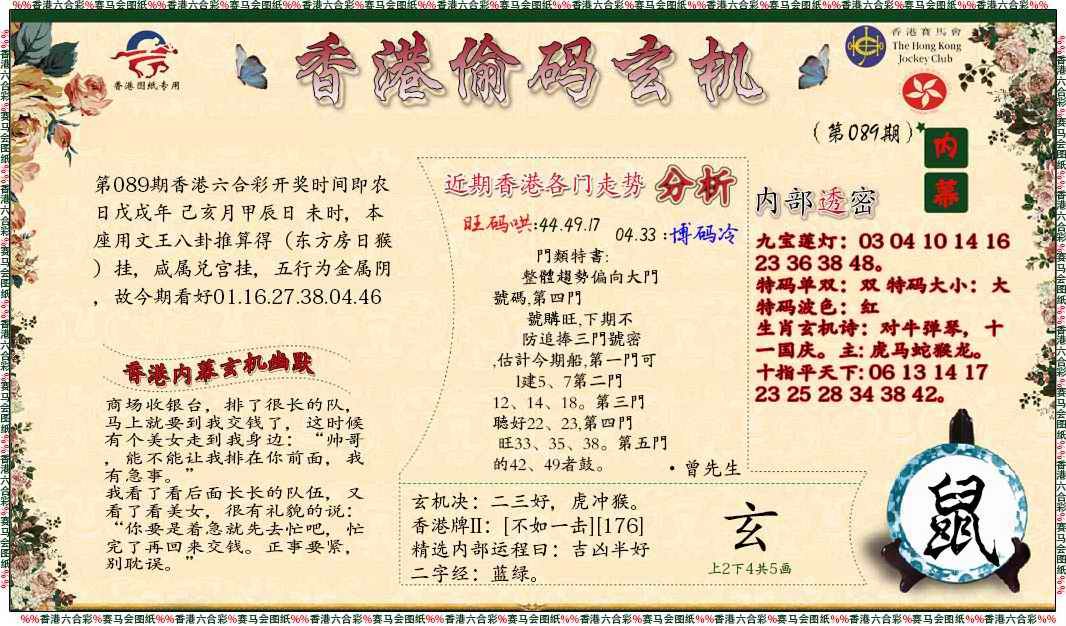 %%香港六合彩%赛马会图纸%%香港六合彩%赛马会图纸%%香港六合彩%赛马会图纸%%香港六合彩%赛马会图纸%%香港六合彩%赛马会图纸%%香港六合彩%赛马会图纸%%香港六合彩%赛马会图纸%%香港六合彩%%
香港图纸专用
香港偷码玄机
香港賽馬會
The Hong Kong
Jockey Club
(第089期)
内
幕
第089期香港六合彩开奖时间即农
日戊戌年 己亥月甲辰日 未时，本
座用文王八卦推算得（东方房日猴
）挂，咸属兑宫挂，五行为金属阴
，故今期看好01.16.27.38.04.46
香港内幕玄机幽默
商场收银台，排了很长的队，
马上就要到我交钱了，这时候
有个美女走到我身边：“帅哥
，能不能让我排在你前面，我
有急事。”
我看了看后面长长的队伍，又
看了看美女，很有礼貌的说：
“你要是着急就先去忙吧，忙
完了再回来交钱。正事要紧，
别耽误。”
近期香港各门走势 分析
旺码哄:44.49.17
04.33 :博码冷
門類特書:
整體趨勢偏向大門
號碼,第四門
號購旺,下期不
防追捧三門號密
,估計今期船,第一門可
1建5、7第二門
12、14、18。第三門
聽好22、23,第四門
旺33、35、38。第五門
的42、49者鼓。
·曾先生
内部透密
九宝莲灯：03 04 10 14 16
23 36 38 48。
特码单双：双 特码大小：大
特码波色：红
生肖玄机诗：对牛弹琴，十
一国庆。主: 虎马蛇猴龙。
十指平天下: 06 13 14 17
23 25 28 34 38 42。
玄机决：二三好，虎冲猴。
香港牌II：[不如一击][176]
精选内部运程曰：吉凶半好
二字经：蓝绿。
玄
上2下4共5画
鼠
%%香港六合彩%赛马会图纸%%香港六合彩%赛马会图纸%%香港六合彩%赛马会图纸%%香港六合彩%赛马会图纸%%香港六合彩%赛马会图纸%%香港六合彩%赛马会图纸%%香港六合彩%赛马会图纸%%香港六合彩%%